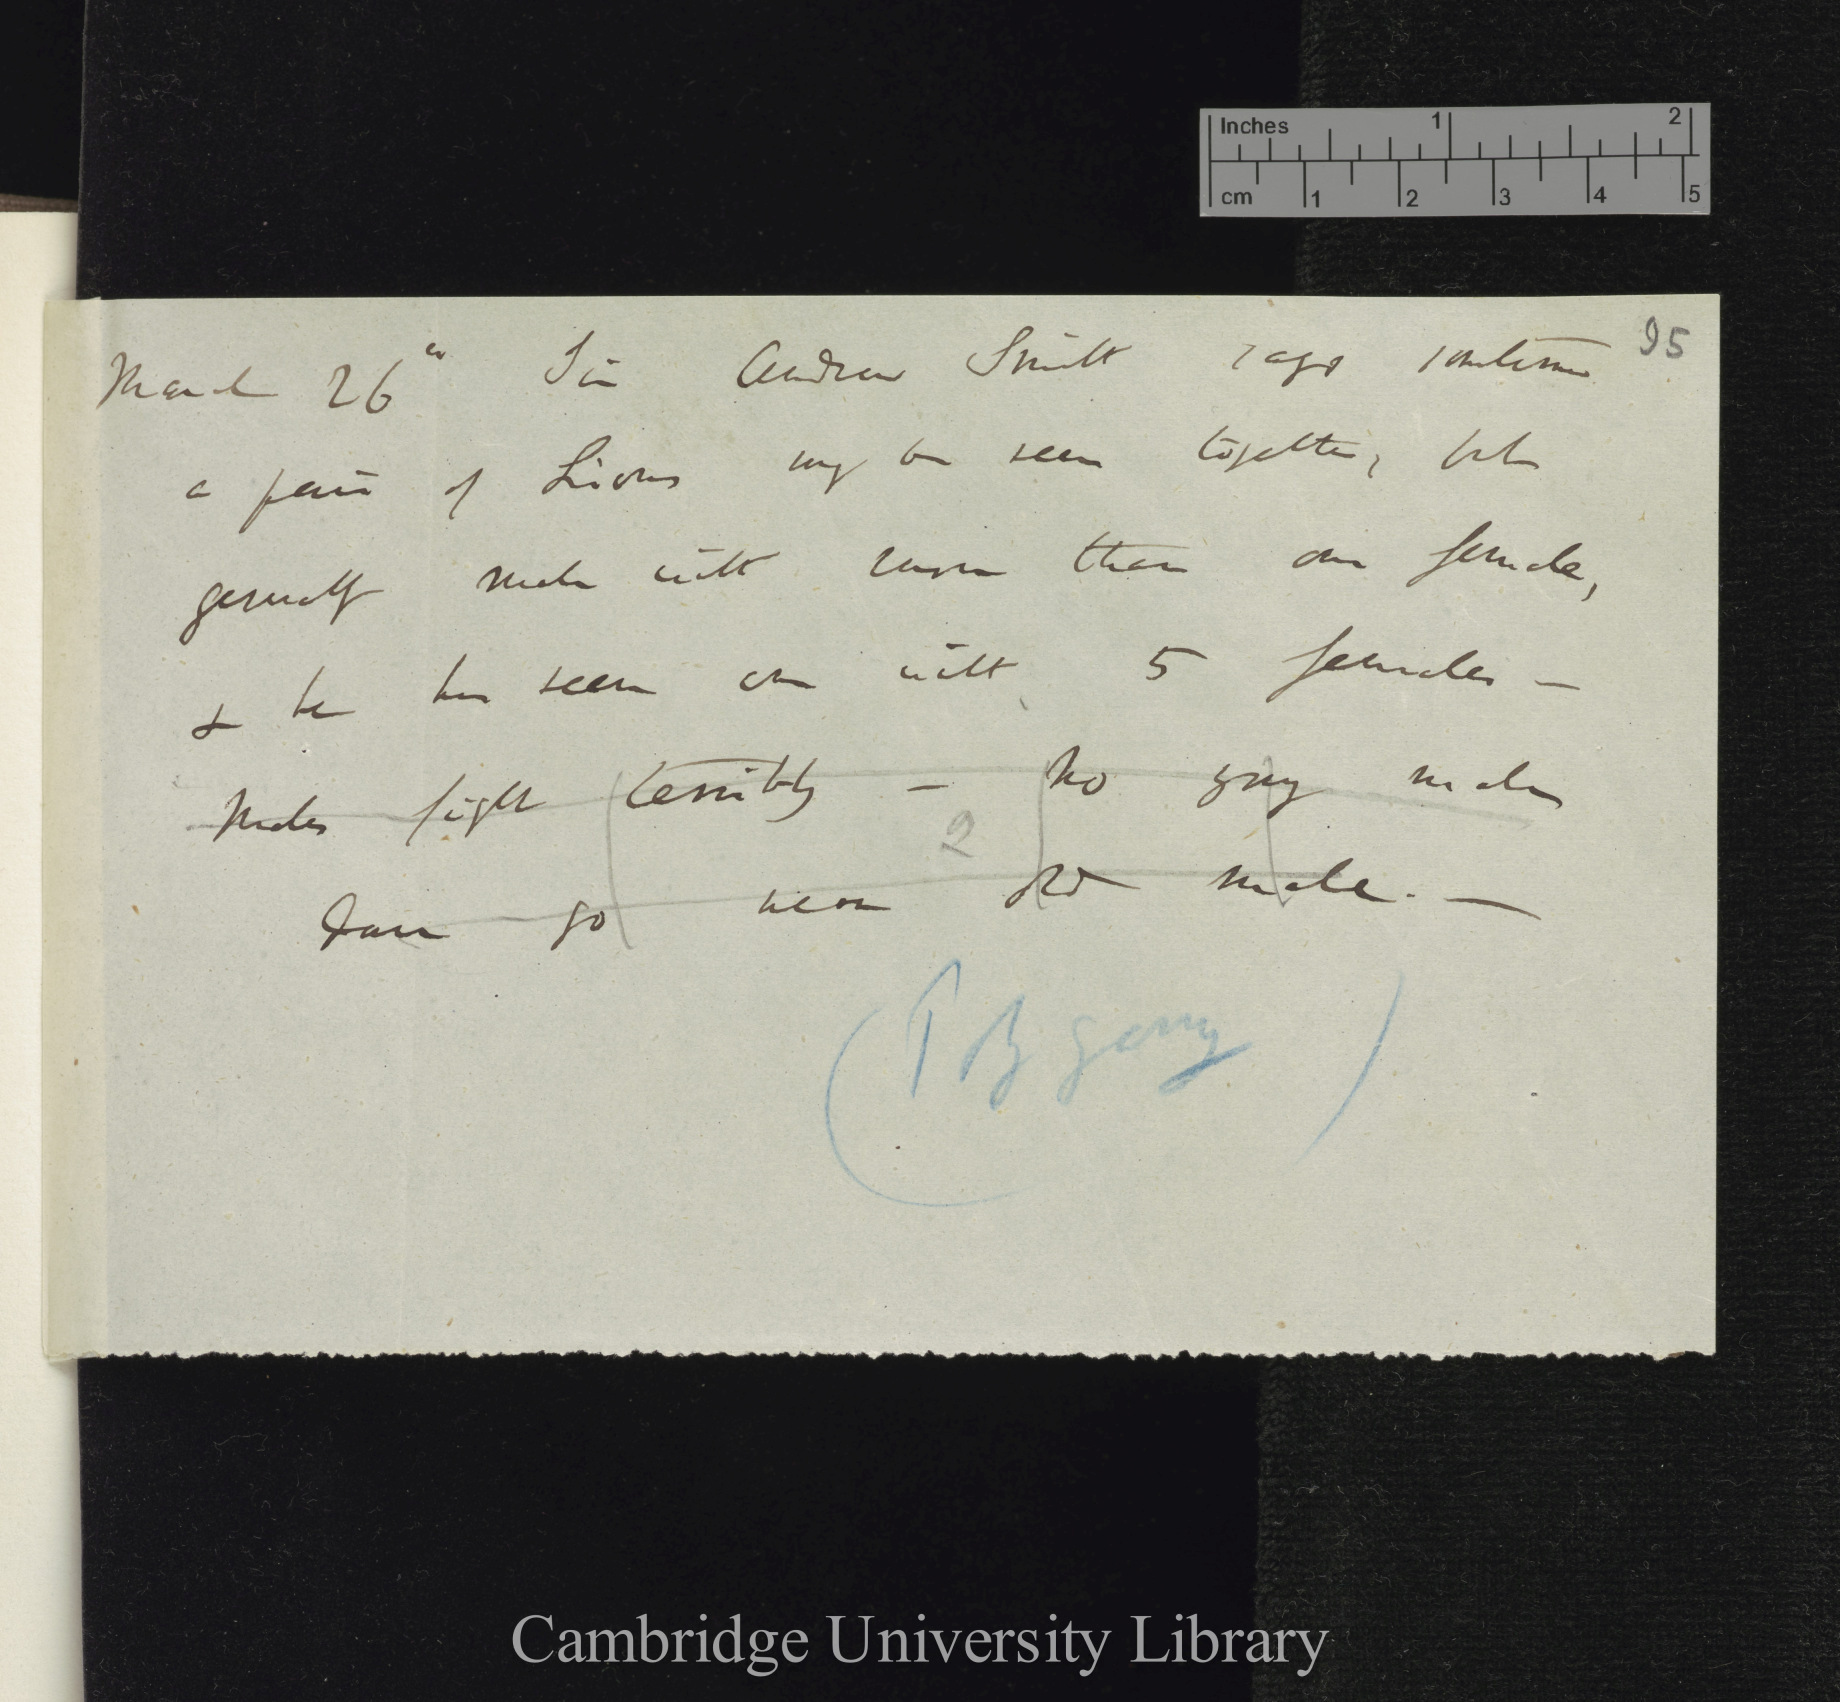 Inches 1 2
cm 1 2 3 4 5
95
March 26th Sir Andrew Smith says sometimes
a pair of Lions may be seen together, but
generally male with more than one female,
& he has seen one with 5 females —
Males fight terribly — No young males
2
dare go near old male. —
(Polygamy)
Cambridge University Library